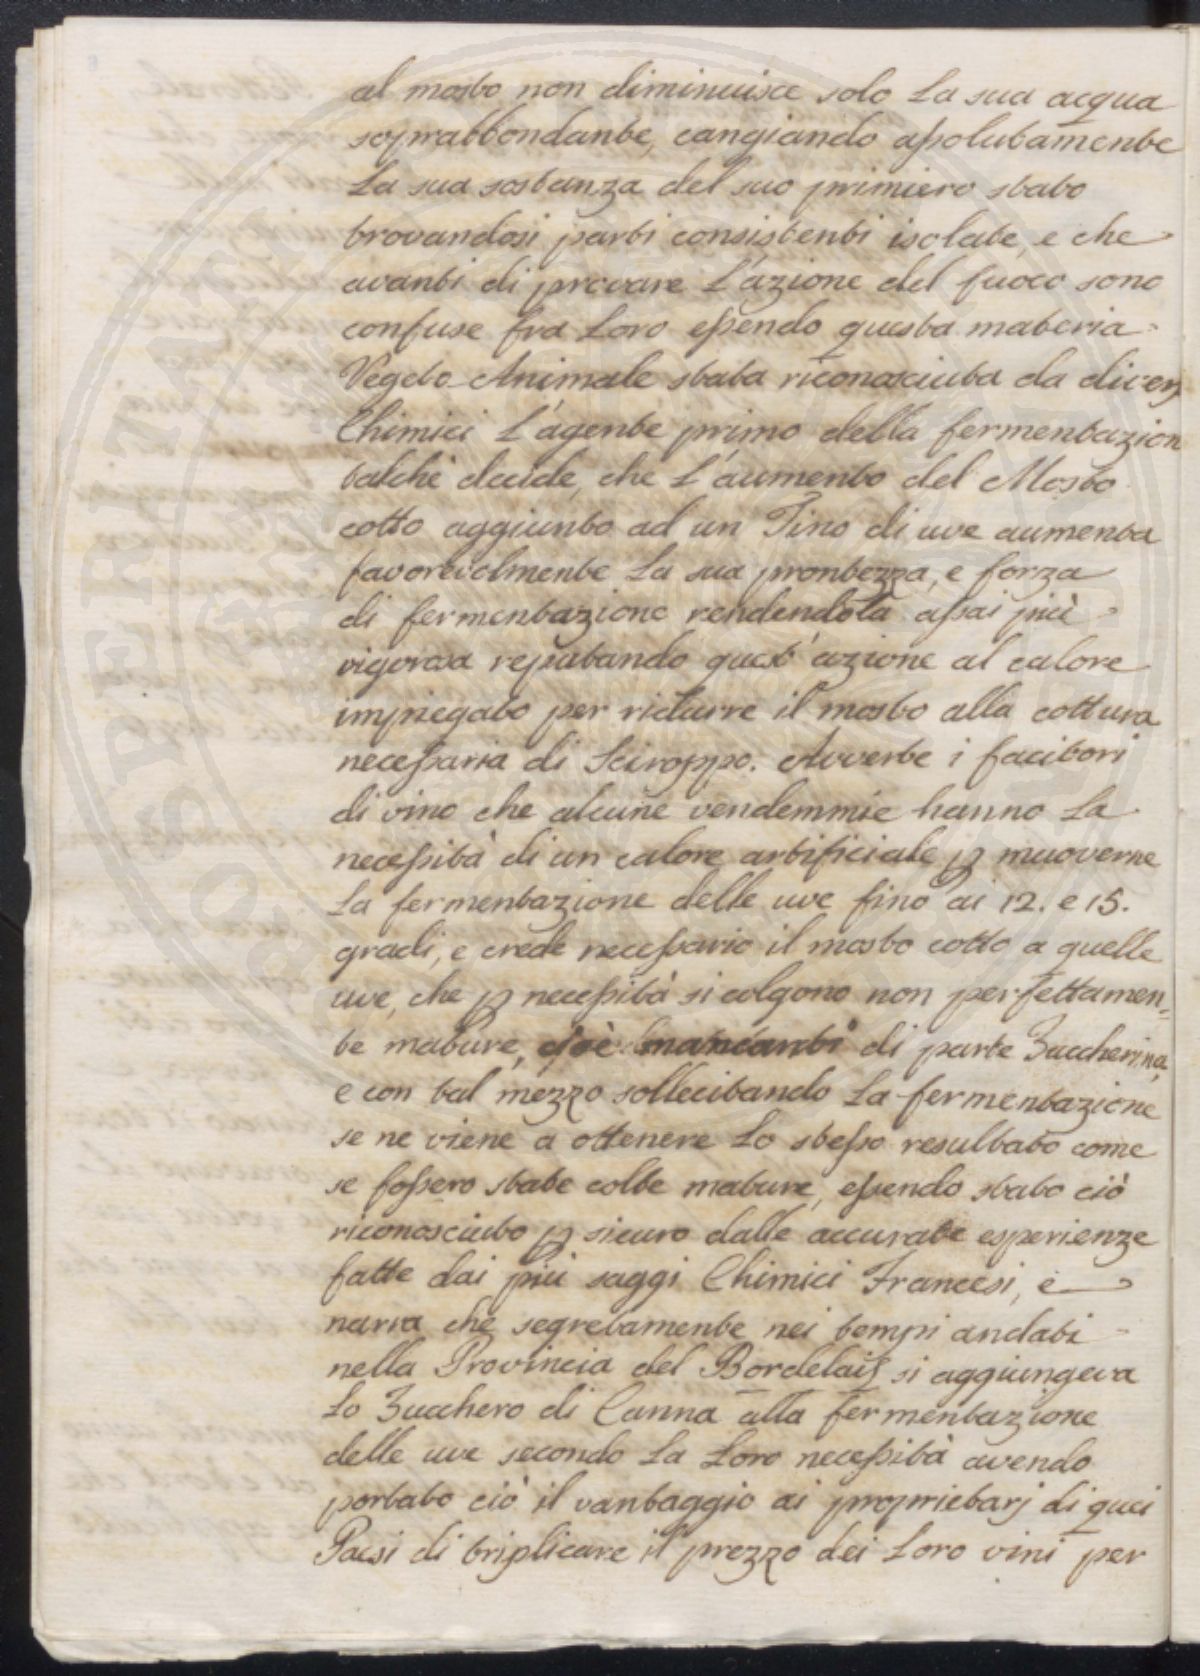 al mosto non diminuisce solo la sua acqua
soprabbondante, cangiando assolutamente
la sua sostanza del suo primiero stato
trovandosi parti consistenti isolate, e che
avanti di provare l'azione del fuoco sono
confuse fra loro essendo questa materia
Vegeto-Animale stata riconosciuta da diversi
Chimici l'agente primo della fermentazion
talchè decide, che l'aumento del Mosto
cotto aggiunto ad un Tino di uve aumenta
favorevolmente la sua prontezza, e forza
di fermentazione rendendola assai più
vigorosa reputando quest'azione al calore
impiegato per ridurre il mosto alla cottura
necessaria di Sciroppo. Avverte i facitori
di vino che alcune vendemmie hanno la
necessità di un calore artificiale p muoverne
la fermentazione delle uve fino ai 12. e 15.
gradi, e crede necessario il mosto cotto a quelle
uve, che p necessità si colgono non perfettamen=
te mature, cioè mancanti di parte Zaccherina,
e con tal mezzo sollecitando la fermentazione
se ne viene a ottenere lo stesso resultato come
se fossero state colte mature, essendo stato ciò
riconosciuto p sicuro dalle accurate esperienze
fatte dai più saggi Chimici Francesi, e
narra che segretamente nei tempi andati
nella Provincia del Bordelais si aggiungeva
lo Zucchero di Canna alla fermentazione
delle uve secondo la loro necessità avendo
portato ciò il vantaggio ai proprietarj di quei
Paesi di triplicare il prezzo dei loro vini per
PROSPERITATI